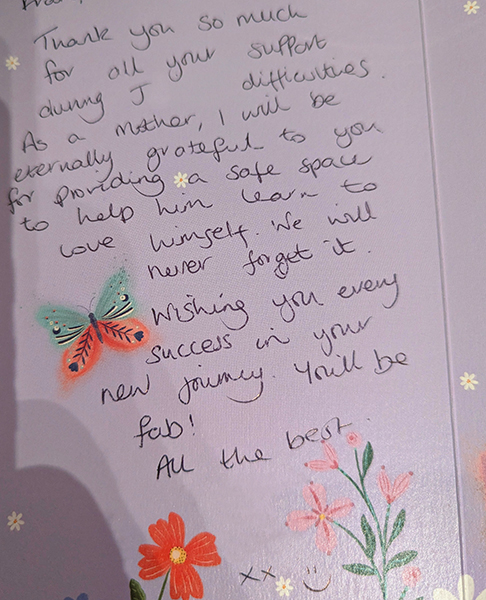 Thank you so much
for all your support
during J difficulties.
As a mother, I will be
eternally grateful to you
for providing a safe space
to help him learn to
love himself. We will
never forget it.
Wishing you every
success in your
new journey. You'll be
fab!
All the best.
xx